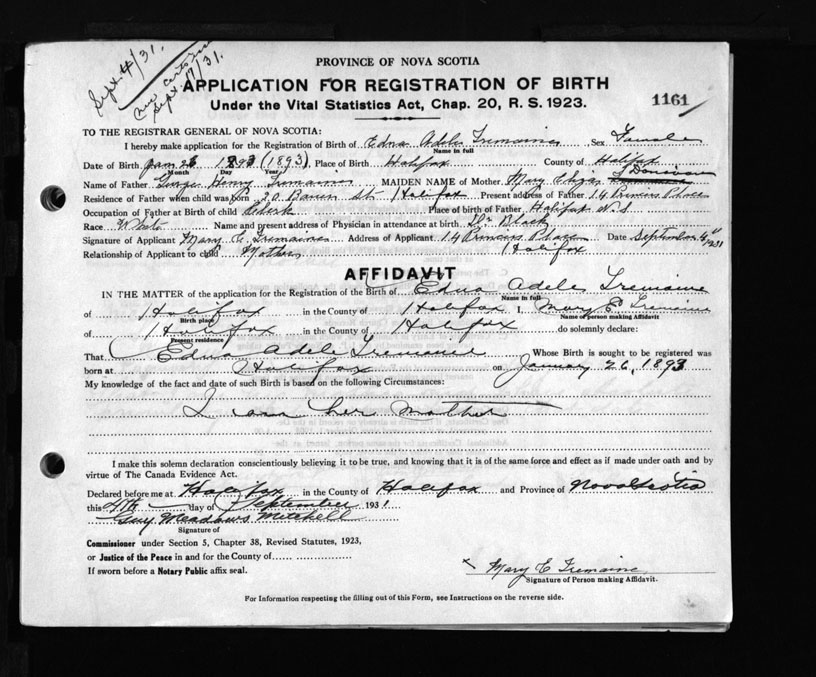 Sept. 4/31.
Sept 17/31.
PROVINCE OF NOVA SCOTIA
APPLICATION FOR REGISTRATION OF BIRTH
Under the Vital Statistics Act, Chap. 20, R. S. 1923.
1161
TO THE REGISTRAR GENERAL OF NOVA SCOTIA:
I hereby make application for the Registration of Birth of Edna Adele Tremaine Sex Female
Name in full
Date of Birth Jan 26 1893 (1893) Place of Birth Halifax County of Halifax
Month Day Year
Name of Father George Henry Tremaine MAIDEN NAME of Mother Mary Donovan
Residence of Father when child was born 20 St Halifax Present address of Father 14 Princess Place
Occupation of Father at Birth of child Clerk Place of birth of Father Halifax N.S
Race White Name and present address of Physician in attendance at birth Dr Black
Signature of Applicant Mary E. Tremaine Address of Applicant 14 Princess Place Date September 4th 1931
Relationship of Applicant to child Mother Halifax
AFFIDAVIT
IN THE MATTER of the application for the Registration of the Birth of Edna Adele Tremaine
Name in full
of Halifax in the County of Halifax I, Mary E Tremaine
Birth place Name of person making Affidavit
of Halifax in the County of Halifax do solemnly declare:
Present residence
That Edna Adele Tremaine Whose Birth is sought to be registered was
born at Halifax on January 26, 1893
My knowledge of the fact and date of such Birth is based on the following Circumstances:
I am her mother
I make this solemn declaration conscientiously believing it to be true, and knowing that it is of the same force and effect as if made under oath and by
virtue of The Canada Evidence Act.
Declared before me at Halifax in the County of Halifax and Province of Nova Scotia
this 4th day of September 1931
Guy Meadows Mitchell
Signature of
Commissioner under Section 5, Chapter 38, Revised Statutes, 1923,
or Justice of the Peace in and for the County of
If sworn before a Notary Public affix seal.
x Mary E Tremaine
Signature of Person making Affidavit.
For Information respecting the filling out of this Form, see Instructions on the reverse side.